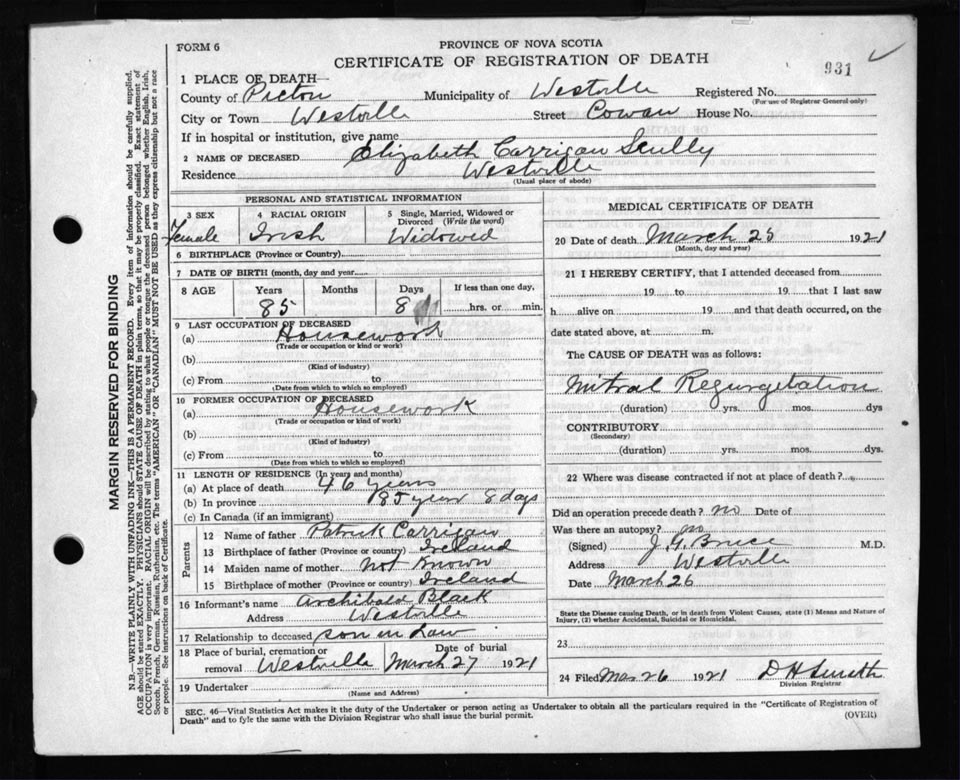 FORM 6
PROVINCE OF NOVA SCOTIA
CERTIFICATE OF REGISTRATION OF DEATH
931
1 PLACE OF DEATH—
County of Pictou Municipality of Westville Registered No.
(For use of Registrar General only)
City or Town Westville Street Cowan House No.
If in hospital or institution, give name
2 NAME OF DECEASED Elizabeth Carrigan Scully
Residence Westville
(Usual place of abode)
PERSONAL AND STATISTICAL INFORMATION
3 SEX 4 RACIAL ORIGIN 5 Single, Married, Widowed or Divorced (Write the word)
Female Irish Widowed
6 BIRTHPLACE (Province or Country)
7 DATE OF BIRTH (month, day and year)
8 AGE Years Months Days If less than one day,
85 8 hrs. or min.
9 LAST OCCUPATION OF DECEASED
(a) Housework
(Trade or occupation or kind or work)
(b)
(Kind of industry)
(c) From to
(Date from which to which so employed)
10 FORMER OCCUPATION OF DECEASED
(a) Housework
(Trade or occupation or kind of work)
(b)
(Kind of industry)
(c) From to
(Date from which to which so employed)
11 LENGTH OF RESIDENCE (In years and months)
(a) At place of death 46 years
(b) In province 85 year 8 days
(c) In Canada (if an immigrant)
Parents
12 Name of father Patrick Carrigan
13 Birthplace of father (Province or country) Ireland
14 Maiden name of mother not known
15 Birthplace of mother (Province or country) Ireland
16 Informant's name Archibald Black
Address Westville
17 Relationship to deceased son in Law
18 Place of burial, cremation or removal Westville Date of burial March 27 1921
19 Undertaker
(Name and Address)
MEDICAL CERTIFICATE OF DEATH
20 Date of death March 25 1921
(Month, day and year)
21 I HEREBY CERTIFY, that I attended deceased from
19 to 19 that I last saw
h alive on 19 and that death occurred, on the
date stated above, at m.
The CAUSE OF DEATH was as follows:
Mitral Regurgetation
(duration) yrs. mos. dys
CONTRIBUTORY
(Secondary)
(duration) yrs. mos. dys.
22 Where was disease contracted if not at place of death?
Did an operation precede death? no Date of
Was there an autopsy? no
(Signed) J. G. Bruce M.D.
Address Westville
Date March 26
State the Disease causing Death, or in death from Violent Causes, state (1) Means and Nature of
Injury, (2) whether Accidental, Suicidal or Homicidal.
23
24 Filed Mar 26 1921 D H Smith
Division Registrar
SEC. 46—Vital Statistics Act makes it the duty of the Undertaker or person acting as Undertaker to obtain all the particulars required in the "Certificate of Registration of
Death" and to fyle the same with the Division Registrar who shall issue the burial permit.
(OVER)
MARGIN RESERVED FOR BINDING
N.B.—WRITE PLAINLY WITH UNFADING INK—THIS IS A PERMANENT RECORD. Every item of information should be carefully supplied.
AGE should be stated EXACTLY. PHYSICIANS should STATE CAUSE OF DEATH in plain terms, so that it may be properly classified. Exact statement of
OCCUPATION is very important. RACIAL ORIGIN will be described by stating to what people or tongue the deceased person belonged whether English, Irish,
Scotch, French, German, Russian, Ruthenian, etc. The terms "AMERICAN" OR "CANADIAN" MUST NOT BE USED as they express citizenship but not a race
or people. See instructions on back of Certificate.